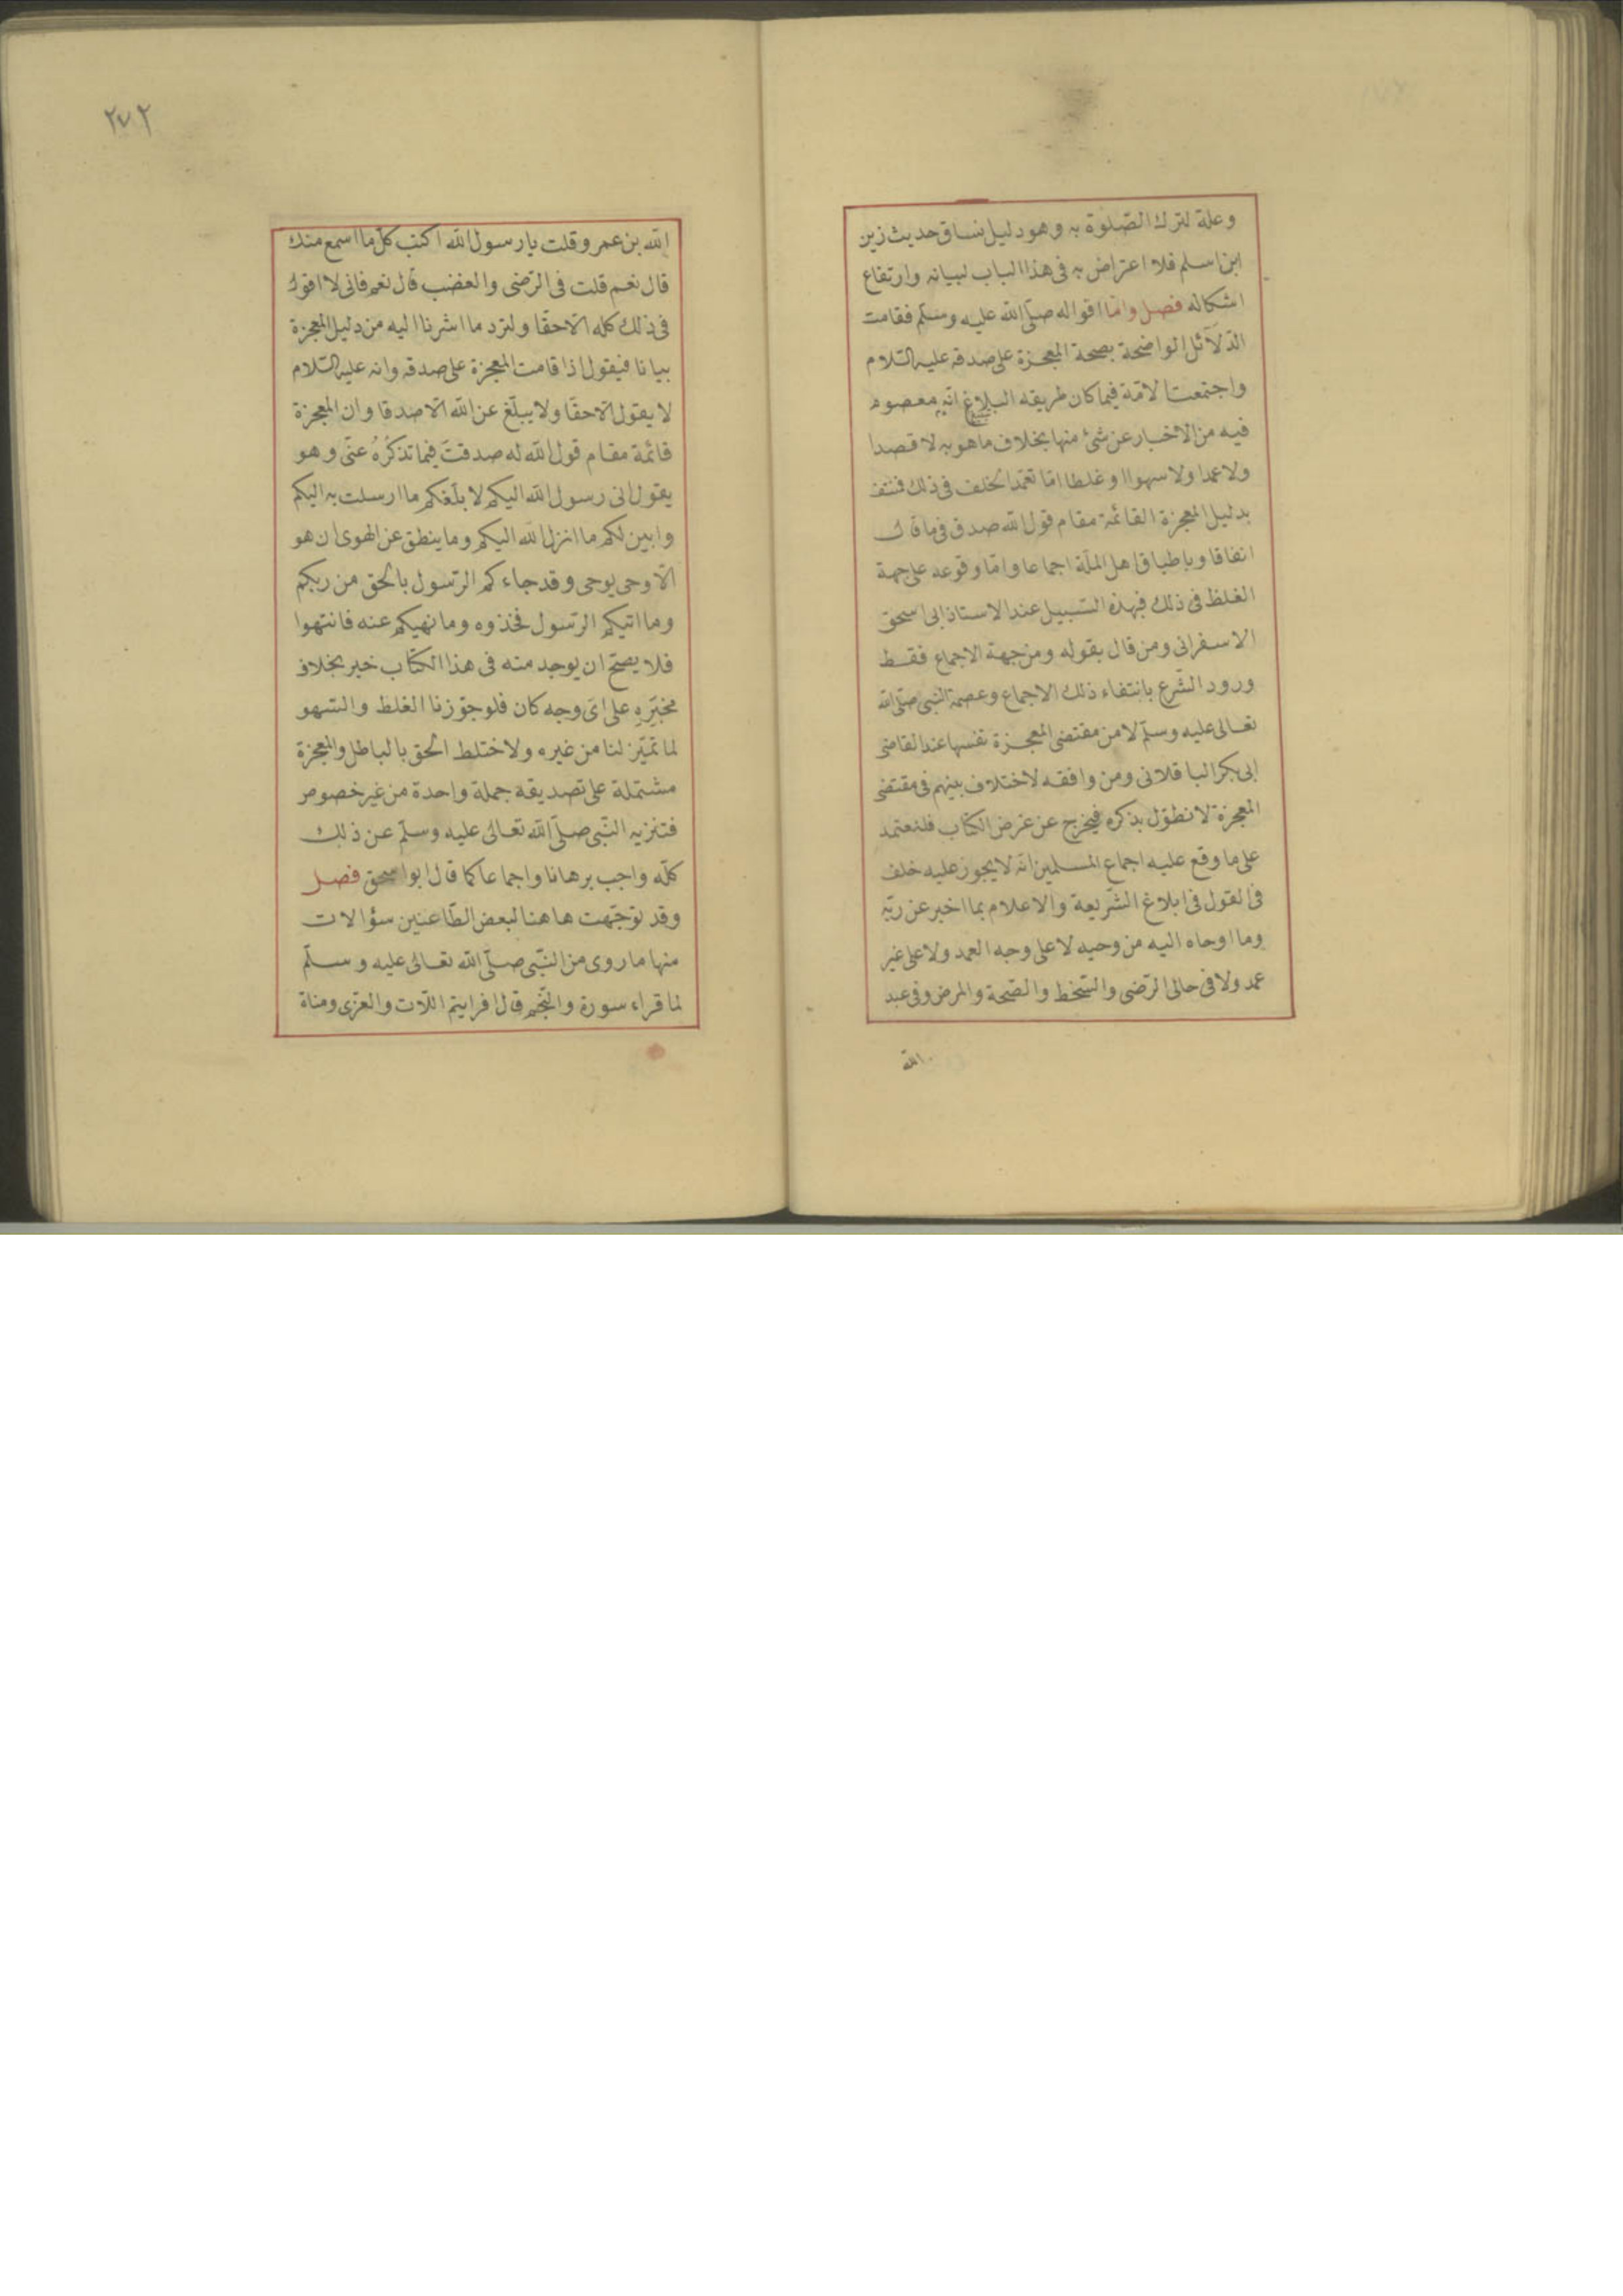 وعلة لترك الصّلوة به وهو دليل نساق حديث زين
ابن اسلم فلا اعتراض به فى هذا الباب لبيانه وارتفاع
اشكاله فصل وامّا اقواله صلّى الله عليه وسلّم فقامت
الدّلائل الواضحة بصحة المعجزة على صدقه عليه السّلام
واجتمعت الامّة فيما كان طريقه البلاغ انّه معصوم
فيه من الاخبار عن شئ منها بخلاف ما هو به لا قصدا
ولا عمدا ولا سهوا او غلطا امّا تعمّد الخلف فى ذلك فمنتف
بدليل المعجزة القائمة مقام قول الله صدق فى ما قال
اتفاقا وباطباق اهل الملّة اجماعا وامّا وقوعه على جهة
الغلط فى ذلك فبهذه السّبيل عند الاستاذ ابى اسحق
الاسفرانى ومن قال بقوله ومن جهة الاجماع فقط
ورود الشّرع بانتفاء ذلك الاجماع وعصمة النبى صلّى الله
تعالى عليه وسلّم لا من مقتضى المعجزة نفسها عند القاضى
ابى بكر الباقلانى ومن وافقه لاختلاف بينهم فى مقتضى
المعجزة لا نطوّل بذكره فيخرج عن غرض الكتاب فلنعتمد
على ما وقع عليه اجماع المسلمين انّه لا يجوز عليه خلف
فى القول فى ابلاغ الشّريعة والاعلام بما اخبر عن ربّه
وما اوحاه اليه من وحيه لا على وجه العمد ولا على غير
عمد ولا فى حالى الرّضى والسّخط والصّحة والمرض وفى عبد
الله
٢٧٢
الله بن عمر و قلت يا رسول الله اكتب كلّ ما اسمع منك
قال نعم قلت فى الرّضى والغضب قال نعم فانى لا اقول
فى ذلك كله الّا حقّا ولنزد ما اشرنا اليه من دليل المعجزة
بيانا فيقول اذا قامت المعجزة على صدقه وانه عليه السّلام
لا يقول الّا حقّا ولا يبلّغ عن الله الّا صدقا وان المعجزة
قائمة مقام قول الله له صدقتَ فيما تذكُرُهُ عنّى وهو
يقول انى رسول الله اليكم لابلّغكم ما ارسلت به اليكم
وابين لكم ما انزل الله اليكم وما ينطق عن الهوى ان هو
الّا وحى يوحى وقد جاءكم الرّسول بالحق من ربكم
وما اتيكم الرّسول فخذوه وما نهيكم عنه فانتهوا
فلا يصحّ ان يوجد منه فى هذا الكتاب خبر بخلاف
مخبَرِهِ على اىّ وجه كان فلو جوّزنا الغلط والسّهو
لما تميّز لنا من غيره ولاختلط الحق بالباطل والمعجزة
مشتملة على تصديقه جملة واحدة من غير خصوص
فتنزيه النّبى صلّى الله تعالى عليه وسلّم عن ذلك
كلّه واجب برهانا واجماعا كما قال ابو اسحق فصل
وقد توجّهت هاهنا لبعض الطّاعنين سؤالات
منها ما روى من النّبى صلّى الله تعالى عليه وسلّم
لما قراء سورة والنّجم قال افرايتم اللّات والعزّى ومناة